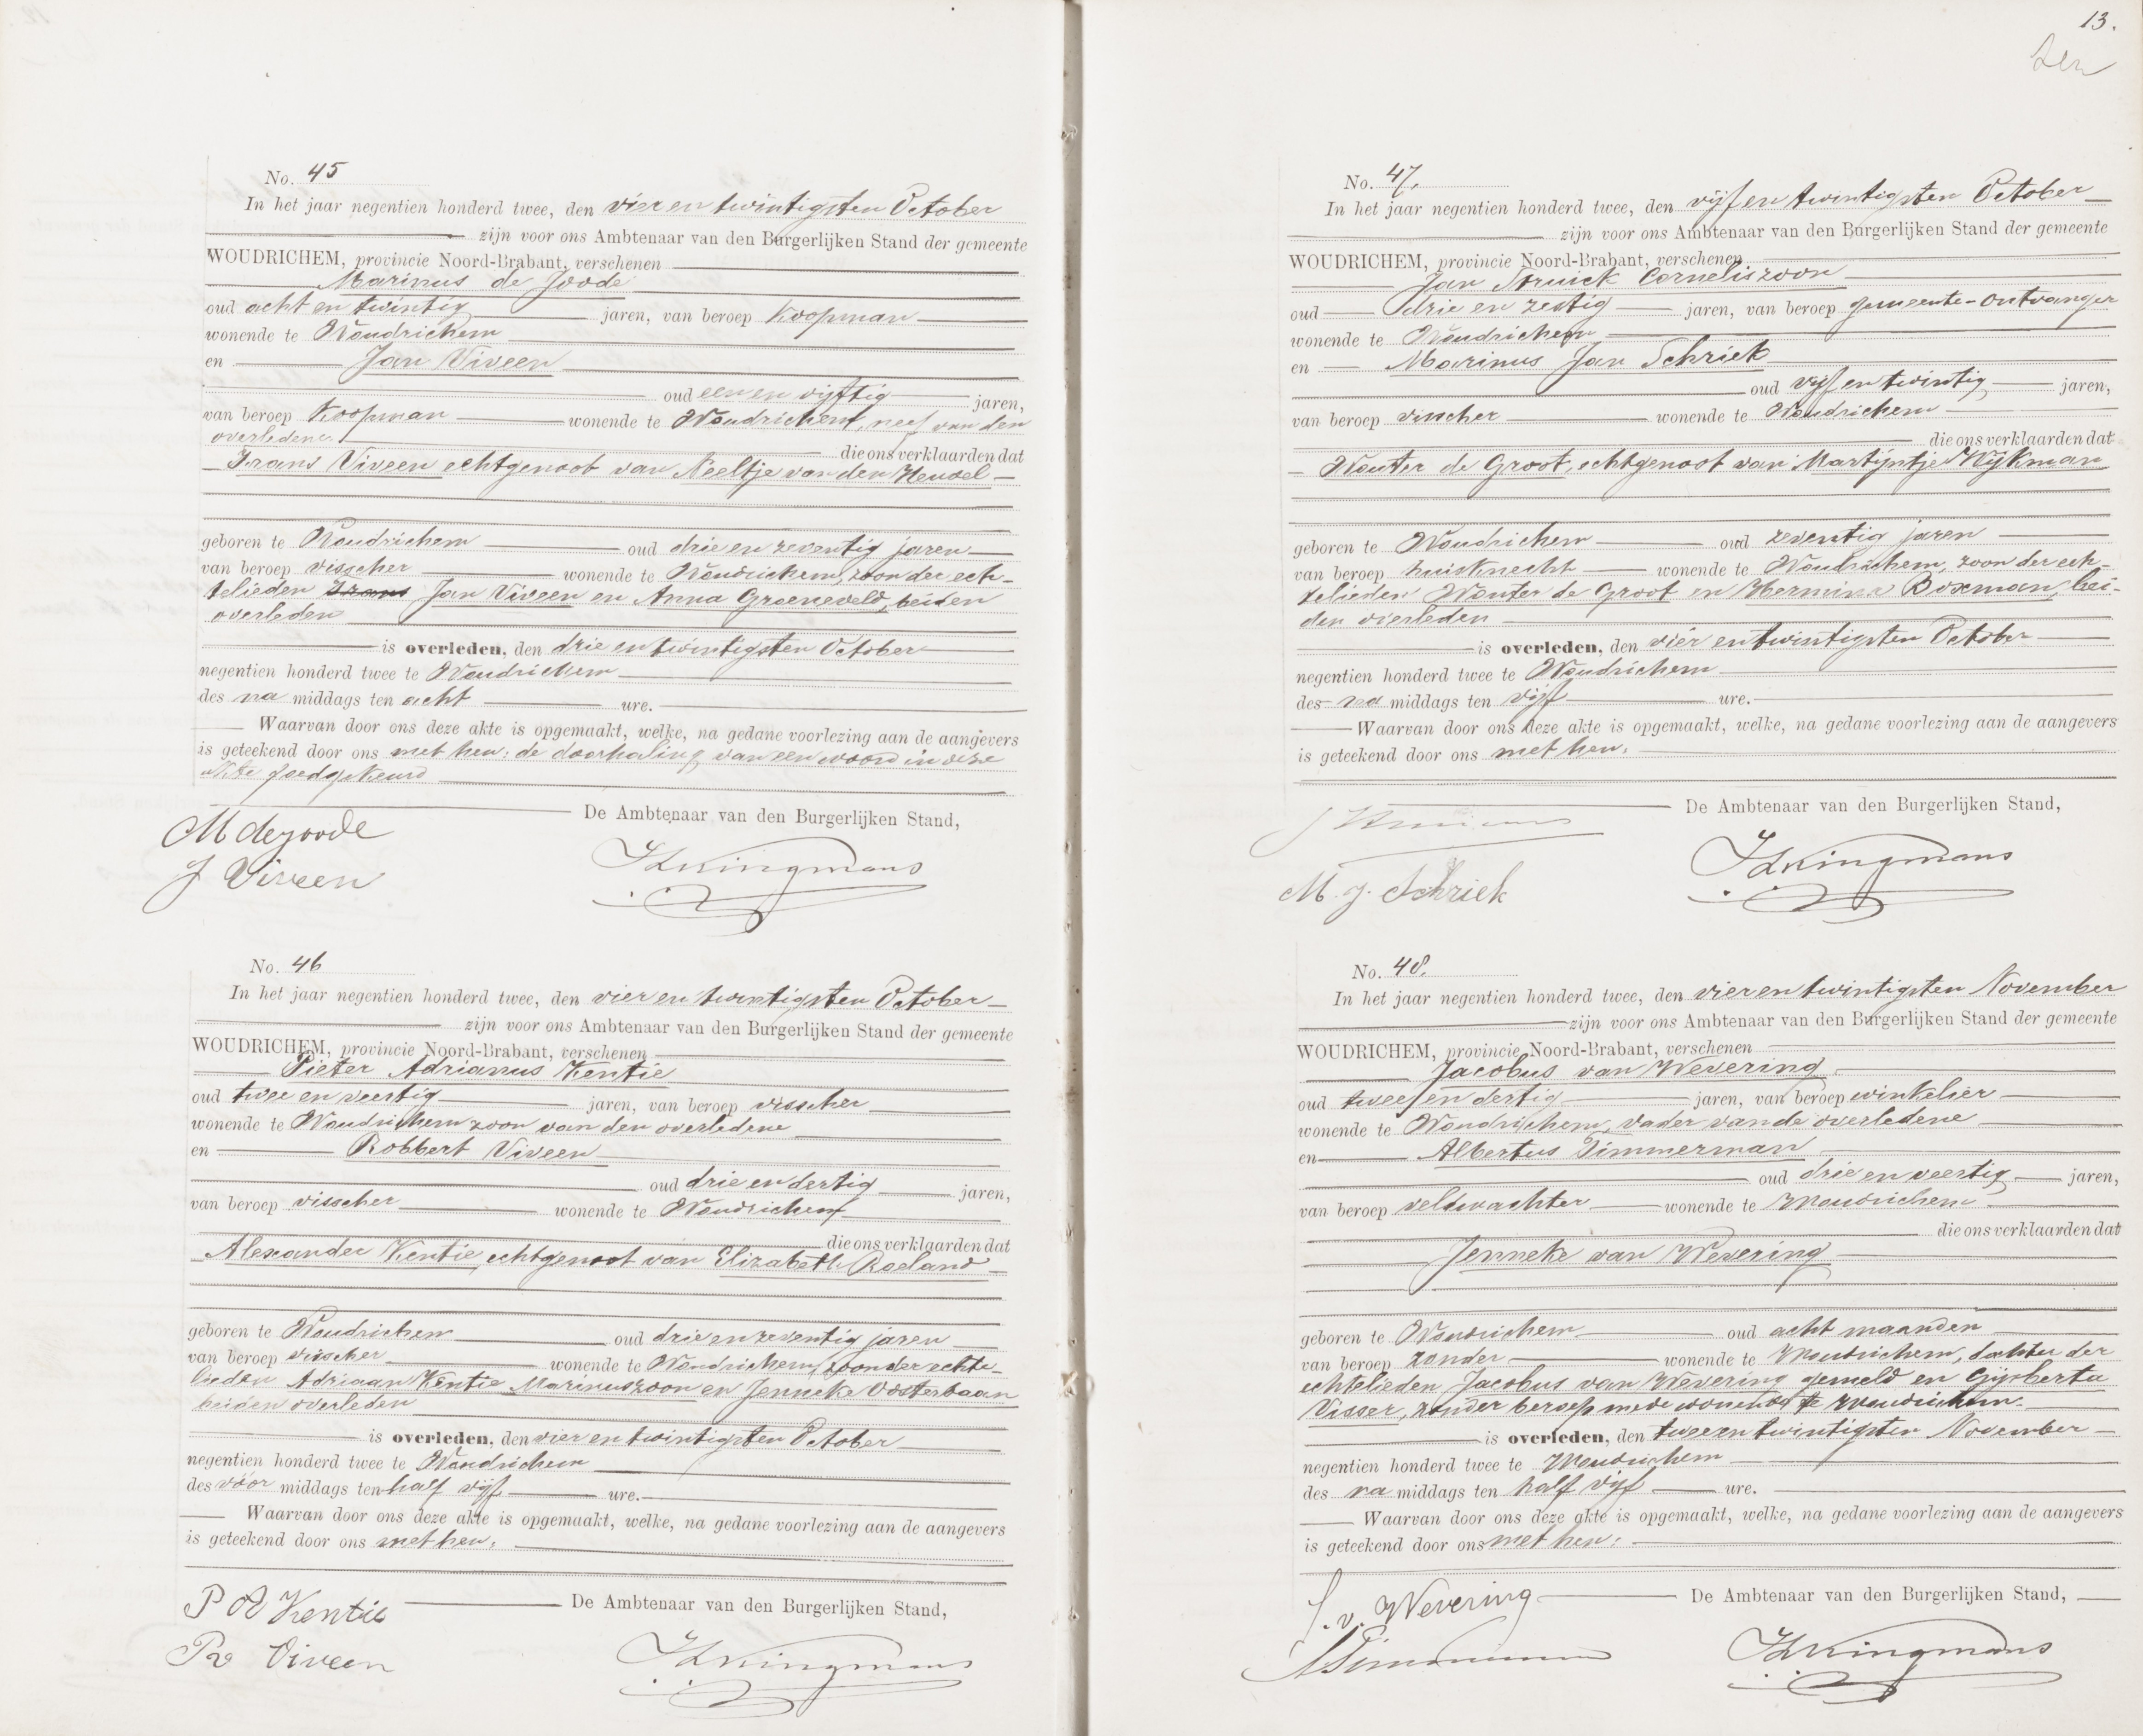 No. 45
In het jaar negentien honderd twee, den vier en twintigsten October
zijn voor ons Ambtenaar van den Burgerlijken Stand der gemeente
WOUDRICHEM, provincie Noord-Brabant, verschenen
Marinus de Joode
oud acht en twintig jaren, van beroep Koopman
wonende te Woudrichem
en Jan Viveen
oud een en vijftig jaren,
van beroep Koopman wonende te Woudrichem, neef van den
overledene die ons verklaarden dat
Frans Viveen echtgenoot van Neeltje van den Heuvel
geboren te Woudrichem oud drie en zeventig jaren
van beroep visscher wonende te Woudrichem, zoon der ech-
telieden Frans Jan Viveen en Anna Groeneveld, beiden
overleden
is overleden, den drie en twintigsten October
negentien honderd twee te Woudrichem
des na middags ten acht ure.
Waarvan door ons deze akte is opgemaakt, welke, na gedane voorlezing aan de aangevers
is geteekend door ons met hen; de doorhaling van een woord in deze
akte goedgekeurd
De Ambtenaar van den Burgerlijken Stand,
M de joode
J Viveen
Kingmans
No. 46
In het jaar negentien honderd twee, den vier en twintigsten October
zijn voor ons Ambtenaar van den Burgerlijken Stand der gemeente
WOUDRICHEM, provincie Noord-Brabant, verschenen
Pieter Adrianus Kentie
oud twee en veertig jaren, van beroep visscher
wonende te Woudrichem zoon van den overledene
en Robbert Viveen
oud drie en dertig jaren,
van beroep visscher wonende te Woudrichem
die ons verklaarden dat
Alexander Kentie, echtgenoot van Elizabeth Roeland
geboren te Woudrichem oud drie en zeventig jaren
van beroep visscher wonende te Woudrichem, zoon der echte-
lieden Adriaan Kentie Marinuszoon en Jenneke Oosterbaan
beiden overleden
is overleden, den vier en twintigsten October
negentien honderd twee te Woudrichem
des vóór middags ten half vijf ure.
Waarvan door ons deze akte is opgemaakt, welke, na gedane voorlezing aan de aangevers
is geteekend door ons met hen.
De Ambtenaar van den Burgerlijken Stand,
P A Kentie
Viveen
Kingmans
13.
No. 47.
In het jaar negentien honderd twee, den vijf en twintigsten October
zijn voor ons Ambtenaar van den Burgerlijken Stand der gemeente
WOUDRICHEM, provincie Noord-Brabant, verschenen
Jan Struick Corneliszoon
oud drie en zestig jaren, van beroep gemeente-ontvanger
wonende te Woudrichem
en Marinus Jan Schriek
oud vijf en twintig jaren,
van beroep visscher wonende te Woudrichem
die ons verklaarden dat
Wouter de Groot, echtgenoot van Martijntje Wijkman
geboren te Woudrichem oud zeventig jaren
van beroep huisknecht wonende te Woudrichem, zoon der ech-
telieden Wouter de Groot en Hermina Boxman, bei-
den overleden
is overleden, den vier en twintigsten October
negentien honderd twee te Woudrichem
des na middags ten vijf ure.
Waarvan door ons deze akte is opgemaakt, welke, na gedane voorlezing aan de aangevers
is geteekend door ons met hen.
De Ambtenaar van den Burgerlijken Stand,
M. J. Schriek
Kingmans
No. 48.
In het jaar negentien honderd twee, den vier en twintigsten November
zijn voor ons Ambtenaar van den Burgerlijken Stand der gemeente
WOUDRICHEM, provincie Noord-Brabant, verschenen
Jacobus van Wevering
oud twee en dertig jaren, van beroep winkelier
wonende te Woudrichem, vader van de overledene
en Albertus Timmerman
oud drie en veertig jaren,
van beroep veldwachter wonende te Woudrichem
die ons verklaarden dat
Jenneke van Wevering
geboren te Woudrichem oud acht maanden
van beroep zonder wonende te Woudrichem, dochter der
echtelieden Jacobus van Wevering gemeld en Gijsberta
Visser, zonder beroep mede wonende te Woudrichem.
is overleden, den twee en twintigsten November
negentien honderd twee te Woudrichem
des na middags ten half vijf ure.
Waarvan door ons deze akte is opgemaakt, welke, na gedane voorlezing aan de aangevers
is geteekend door ons met hen.
De Ambtenaar van den Burgerlijken Stand,
J. v. Wevering
Kingmans